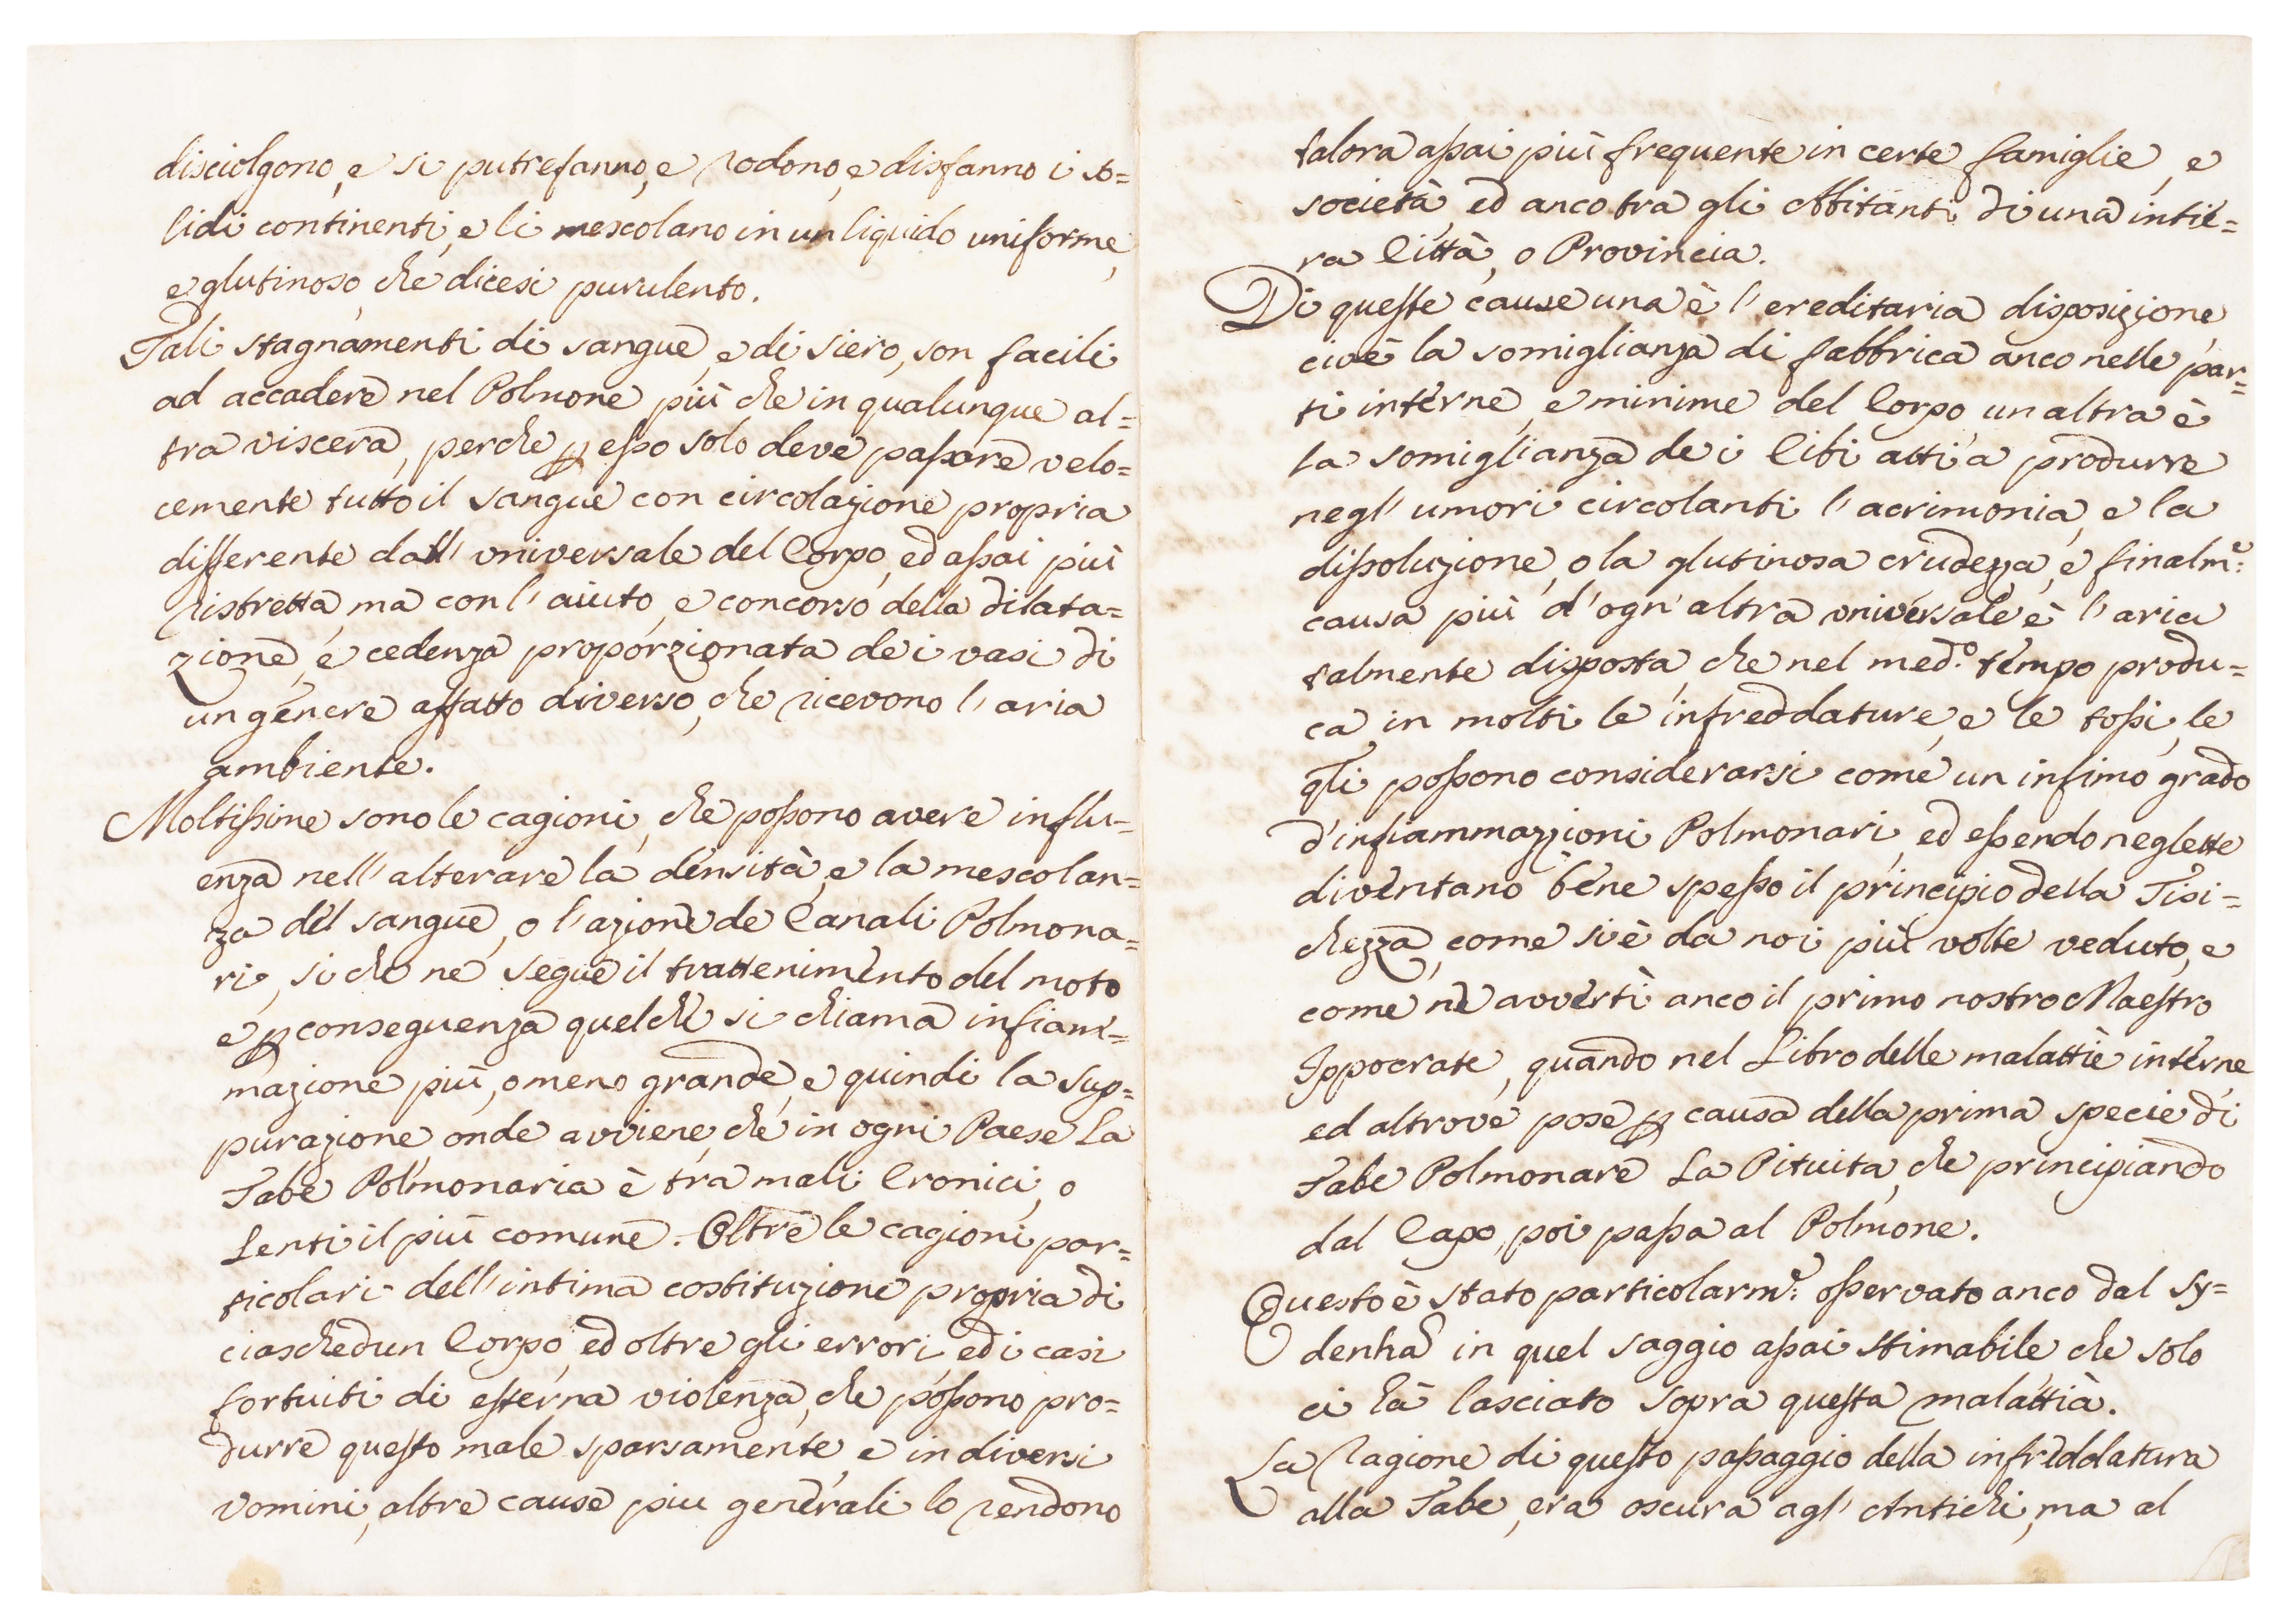 disciolgono, e si putrefanno, e rodono, e disfanno i so=
lidi continenti, e li mescolano in un liquido uniforme,
e glutinoso, che dicesi purulento.
Tali stagnamenti di sangue, e di siero, son facili
ad accadere nel Polmone più che in qualunque al=
tra viscera, perche ꝑ esso solo deve passare velo=
cemente tutto il sangue con circolazione propria
differente dall' universale del Corpo, ed assai più
ristretta, ma con l' aiuto, e concorso della dilata=
zione, e cedenza proporzionata dei vasi di
un genere affatto diverso, che ricevono l' aria
ambiente.
Moltissime sono le cagioni, che possono avere influ=
enza nell' alterare la densità, e la mescolan=
za del sangue, o l' azione de Canali Polmona=
ri, si che ne segue il trattenimento del moto
e ꝑ conseguenza quel che si chiama infiam=
mazione più, o meno grande, e quindi la sup=
purazione, onde avviene, che in ogni Paese La
Tabe Polmonaria è tra mali Cronici, o
Lenti il più comune. Oltre le cagioni par=
ticolari dell' intima costituzione propria di
ciaschedun Corpo, ed oltre gli errori, ed i casi
fortuiti di esterna violenza, che possono pro=
durre questo male sparsamente, e in diversi
Vomini, altre cause piu generali lo rendono
talora assai più frequente in certe famiglie, e
società, ed anco tra gli Abitanti di una intie=
ra Città, o Provincia.
Di queste cause una è l' ereditaria disposizione,
cioè la somiglianza di fabbrica anco nelle par=
ti interne, e minime del Corpo, un altra è
la somiglianza dei Cibi atti a produrre
negl' umori circolanti l' acrimonia, e la
dissoluzione, o la glutinosa crudezza, e finalm.e
causa più d' ogn' altra universale è l' aria
talmente disposta, che nel med.o tempo produ=
ca in molti le infreddature, e le tossi, le
qli possono considerarsi come un infimo grado
d' infiammazzioni Polmonari, ed essendo neglette
diventano bene spesso il principio della Tisi=
chezza, come si è da noi più volte veduto, e
come ne avvertì anco il primo nostro Maestro
Ippocrate, quando nel Libro delle malattie interne
ed altrove pose ꝑ causa della prima specie di
Tabe Polmonare La Pituita, che principiando
dal Capo, poi passa al Polmone.
Questo è stato particolarm.e osservato anco dal Sy=
denhã in quel saggio assai stimabile che solo
ci hà lasciato sopra questa malattia.
La Ragione di questo passaggio della infreddatura
alla Tabe, era oscura agl' Antichi, ma al